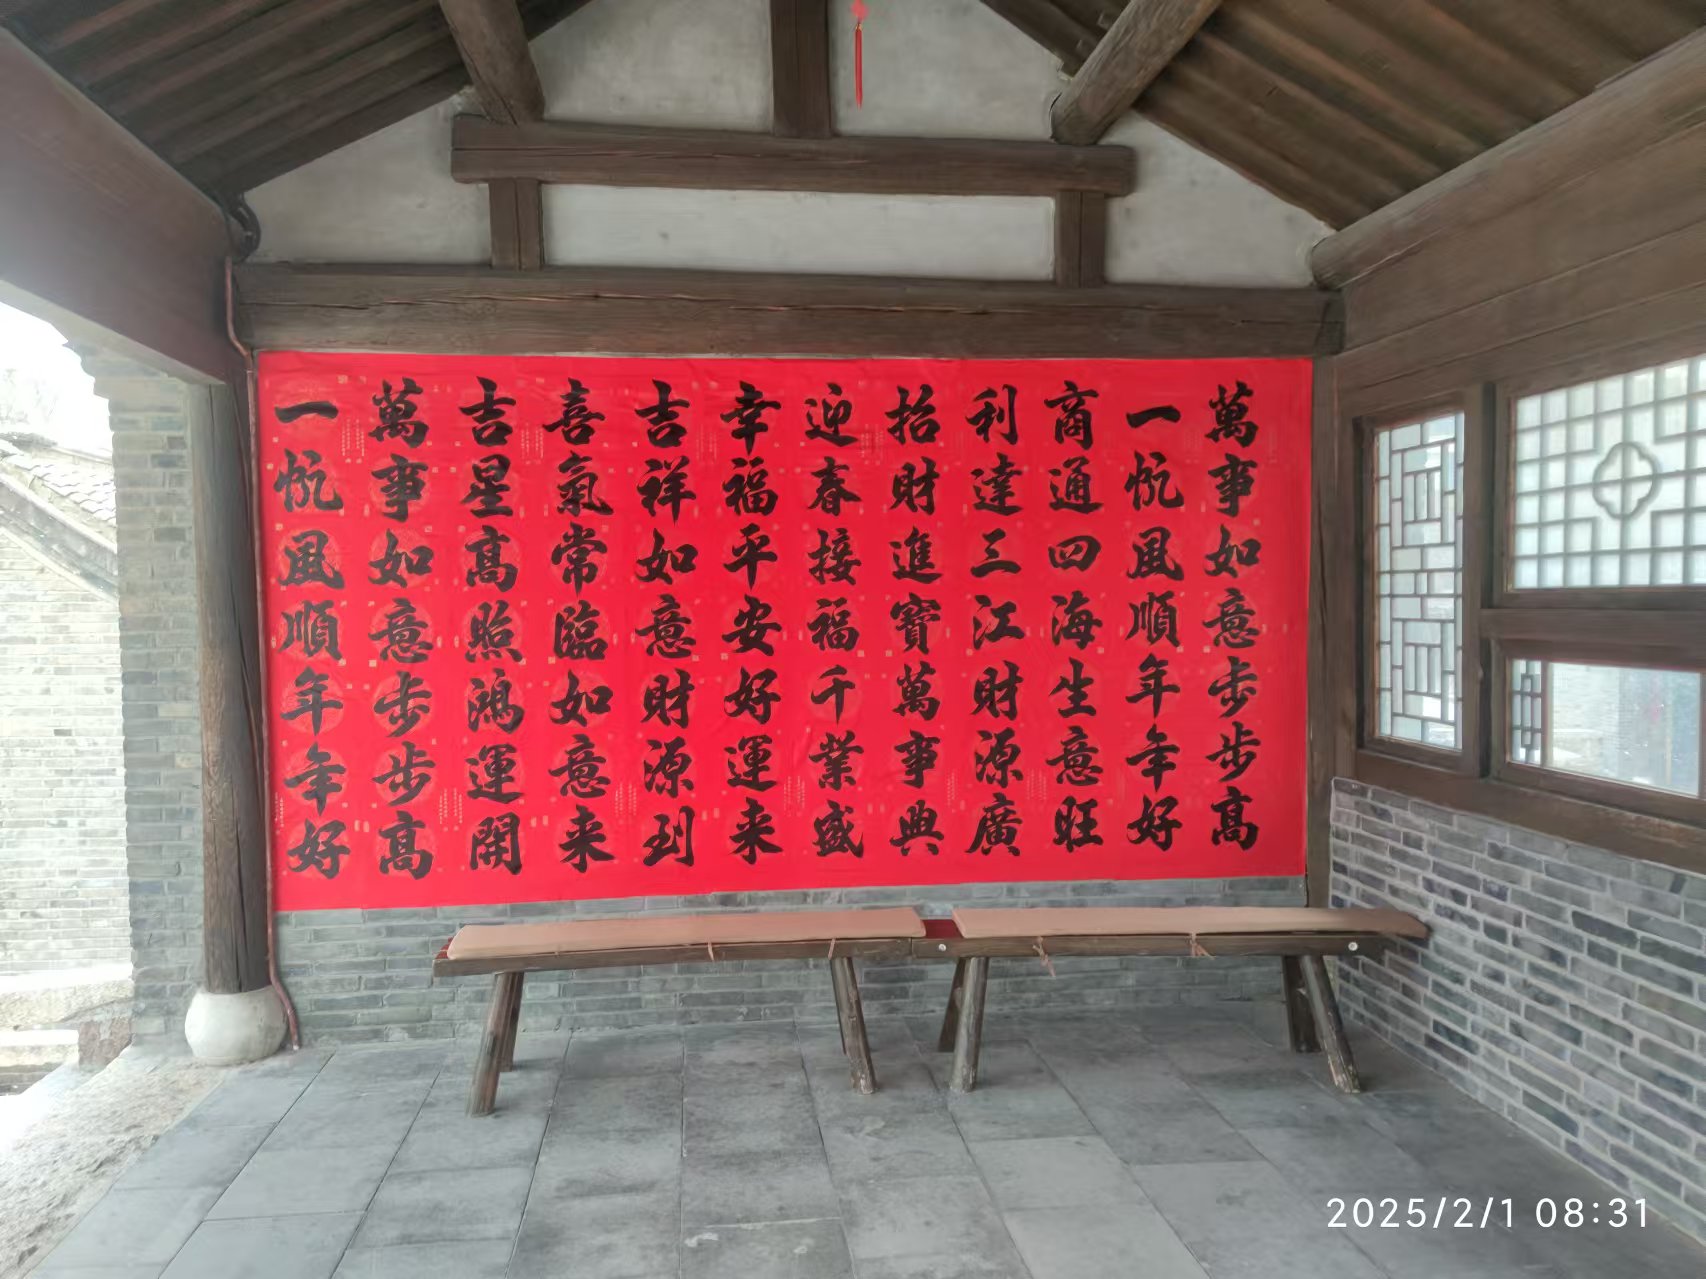 萬事如意步步高
一帆風順年年好
商通四海生意旺
利達三江財源廣
招財進寶萬事興
迎春接福千業盛
幸福平安好運来
吉祥如意財源到
喜氣常臨如意来
吉星高照鴻運開
萬事如意步步高
一帆風順年年好
2025/2/1 08:31